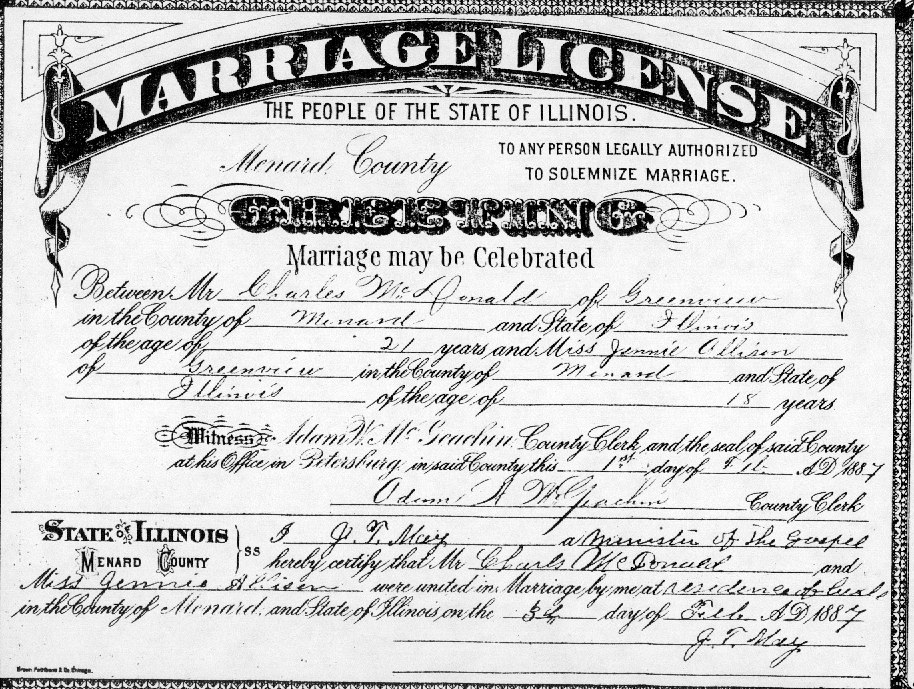 MARRIAGE LICENSE
THE PEOPLE OF THE STATE OF ILLINOIS.
Menard County
TO ANY PERSON LEGALLY AUTHORIZED
TO SOLEMNIZE MARRIAGE.
GREETING
Marriage may be Celebrated
Between Mr Charles McDonald of Greenview
in the County of Menard and State of Illinois
of the age of 21 years, and Miss Jennie Allison
of Greenview in the County of Menard and State of
Illinois of the age of 18 years
Witness Adam County Clerk and the seal of said County
at his Office in Petersburg in said County this 1st day of Feb. A.D. 1887
Adam County Clerk
STATE OF ILLINOIS
MENARD COUNTY
SS
I J. T. May a Minister of the Gospel
hereby certify that Mr Charls McDonald and
Miss Jennie Allison were united in Marriage by me at residence
in the County of Menard, and State of Illinois on the day of Feb A.D. 1887
J. T. May